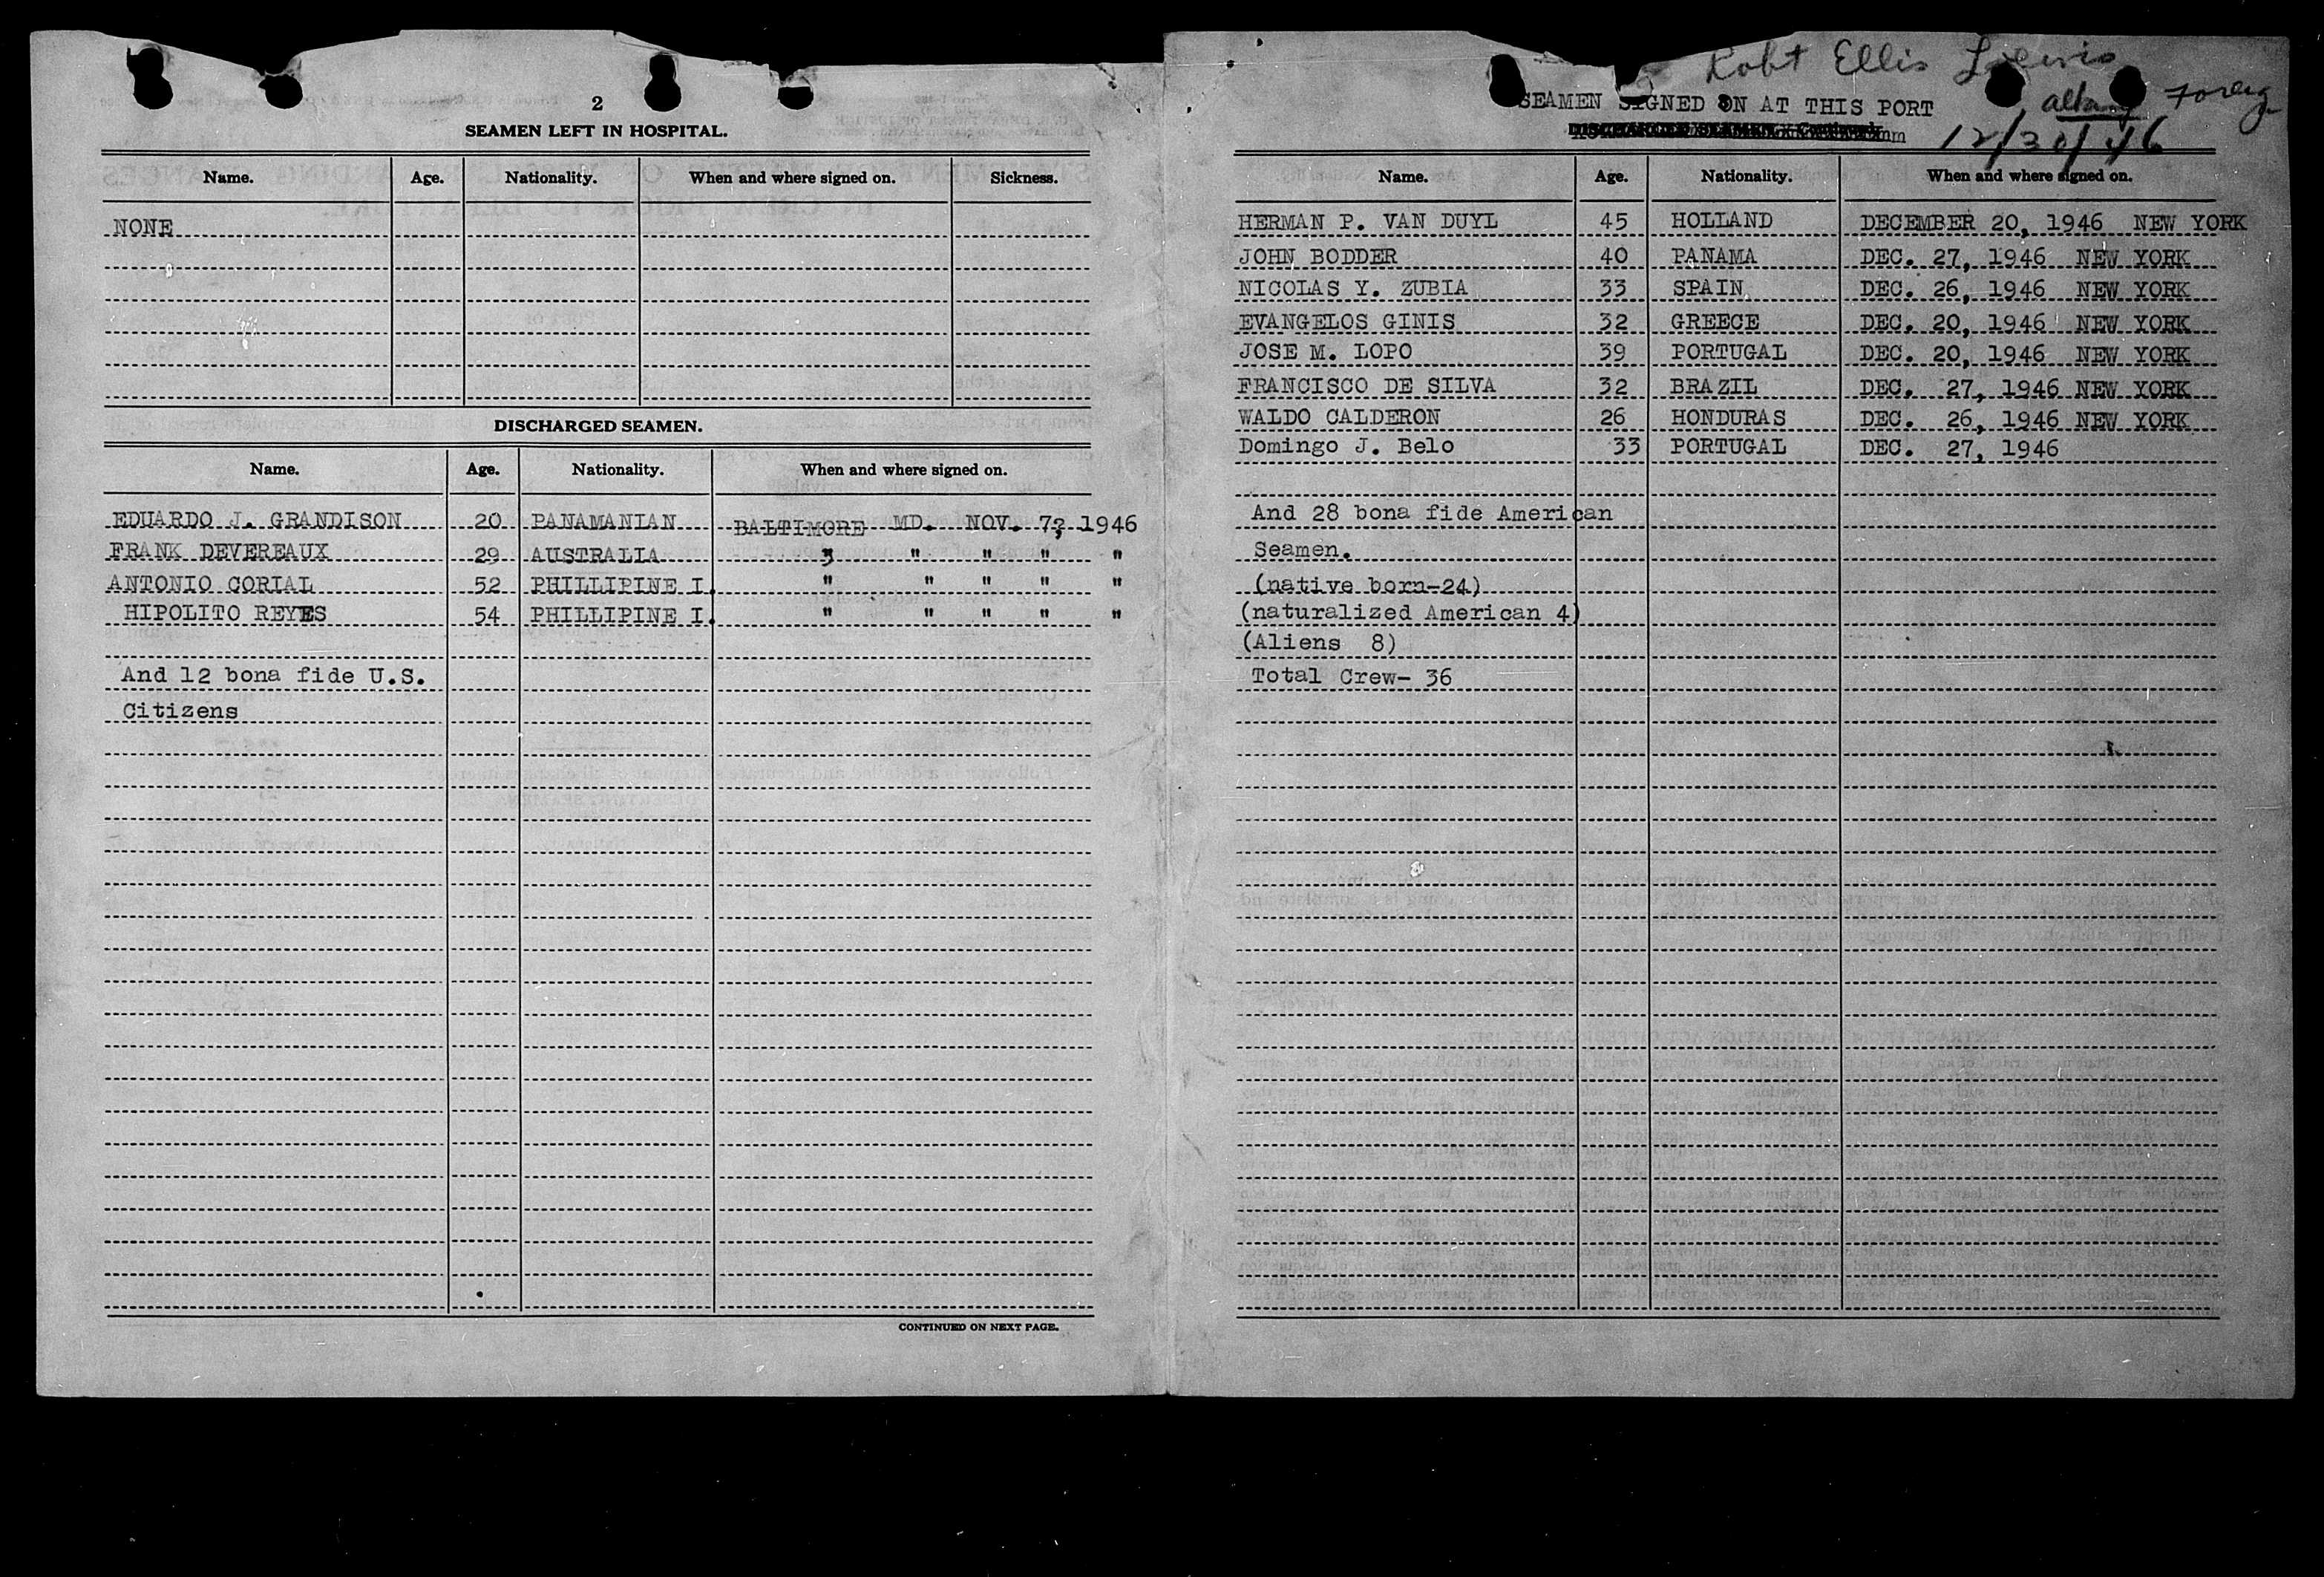 2
SEAMEN LEFT IN HOSPITAL.
Name. Age. Nationality. When and where signed on. Sickness.
NONE
DISCHARGED SEAMEN.
Name. Age. Nationality. When and where signed on.
EDUARDO J. GRANDISON 20 PANAMANIAN BALTIMORE MD. NOV. 7, 1946
FRANK DEVEREAUX 29 AUSTRALIA " " " " "
ANTONIO CORIAL 52 PHILLIPINE I. " " " " "
HIPOLITO REYES 54 PHILLIPINE I. " " " " "
And 12 bona fide U.S.
Citizens
CONTINUED ON NEXT PAGE.
Robt Ellis Lewis
SEAMEN SIGNED ON AT THIS PORT
12/30/46
Name. Age. Nationality. When and where signed on.
HERMAN P. VAN DUYL 45 HOLLAND DECEMBER 20, 1946 NEW YORK
JOHN BODDER 40 PANAMA DEC. 27, 1946 NEW YORK
NICOLAS Y. ZUBIA 33 SPAIN DEC. 26, 1946 NEW YORK
EVANGELOS GINIS 32 GREECE DEC. 20, 1946 NEW YORK
JOSE M. LOPO 39 PORTUGAL DEC. 20, 1946 NEW YORK
FRANCISCO DE SILVA 32 BRAZIL DEC. 27, 1946 NEW YORK
WALDO CALDERON 26 HONDURAS DEC. 26, 1946 NEW YORK
Domingo J. Belo 33 PORTUGAL DEC. 27, 1946
And 28 bona fide American
Seamen.
(native born-24)
(naturalized American 4)
(Aliens 8)
Total Crew- 36